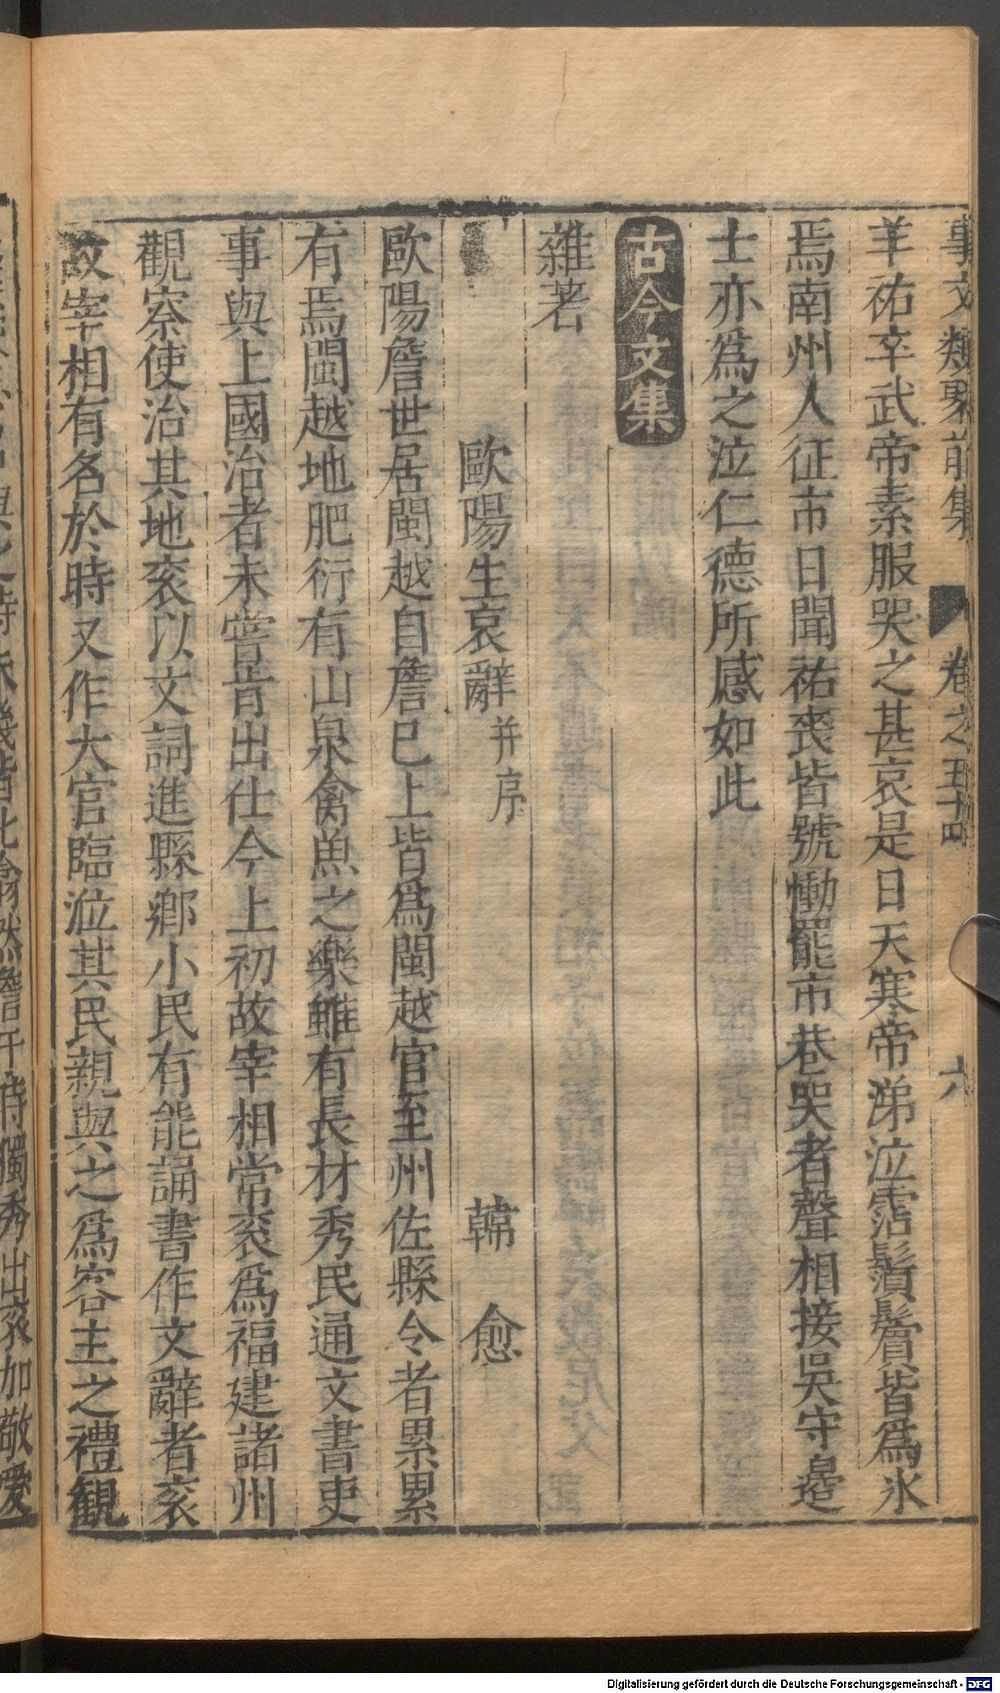 事文類聚前集 卷之五十四 六
羊祜卒武帝素服哭之甚哀是日天寒帝涕泣霑鬚鬢皆為氷
焉南州人征市日聞祜喪皆號慟罷市巷哭者聲相接吳守邊
士亦為之泣仁德所感如此
古今文集
雜著
歐陽生哀辭并序 韓愈
歐陽詹世居閩越自詹已上皆為閩越官至州佐縣令者累累
有焉閩越地肥衍有山泉禽魚之樂雖有長材秀民通文書吏
事與上國治者未嘗肯出仕今上初故宰相常衮為福建諸州
觀察使治其地衮以文詞進縣鄉小民有能誦書作文辭者衮
故宰相有名於時又作大官臨涖其民親與之為客主之禮觀
時獨秀出衮加敬愛
Digitalisierung gefördert durch die Deutsche Forschungsgemeinschaft - DFG